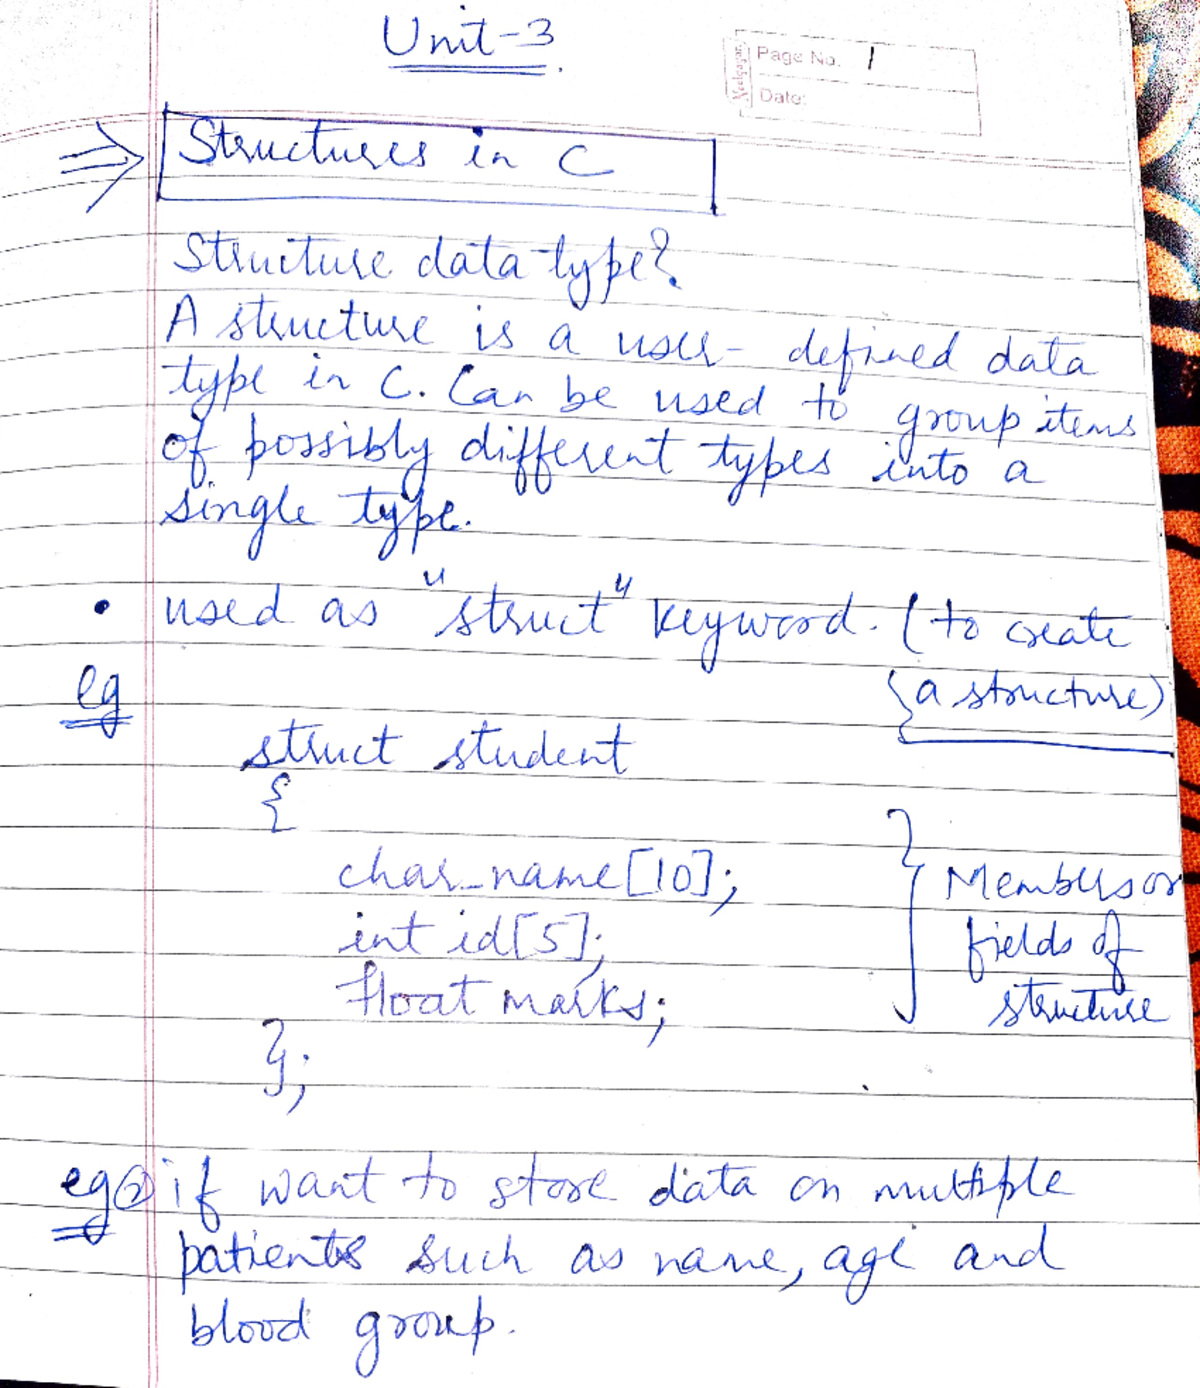 Unit-3
Page No. 1
Date:
Structures in C
Structure data type?
A structure is a user- defined data
type in C. Can be used to group items
of possibly different types into a
single type.
• used as "struct" keyword. (to create
a structure)
eg
struct student
{
char_name[10];
int id[5];
float marks;
};
} Members or
fields of
structure
eg② if want to store data on multiple
patients such as name, age and
blood group.